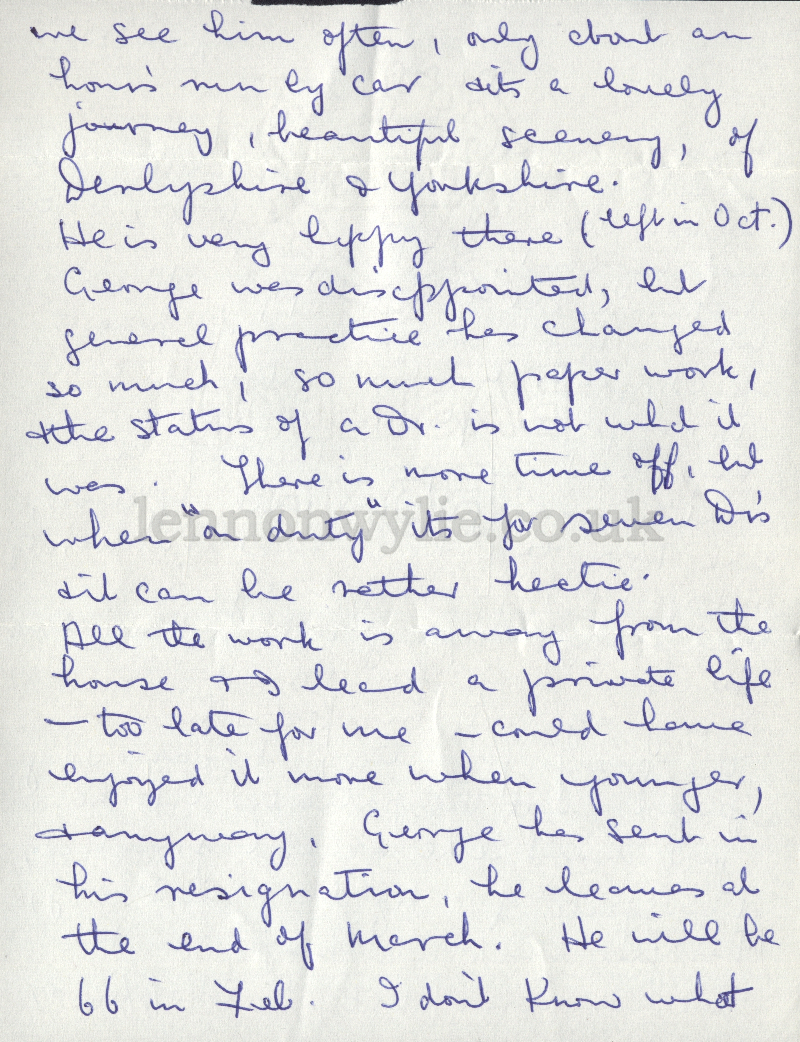 we see him often, only about an
hour's run by car & its a lovely
journey, beautiful scenery, of
Derbyshire & Yorkshire.
He is very happy there (left in Oct.)
George was disappointed, but
general practice has changed
so much, so much paper work,
& the status of a Dr. is not what it
was. There is more time off, but
when "on duty" its for seven Drs
& it can be rather hectic.
All the work is away from the
house & I lead a private life
- too late for me - could have
enjoyed it more when younger,
& anyway, George has sent in
his resignation, he leaves at
the end of March. He will be
66 in Feb. I don't know what
lennonwylie.co.uk